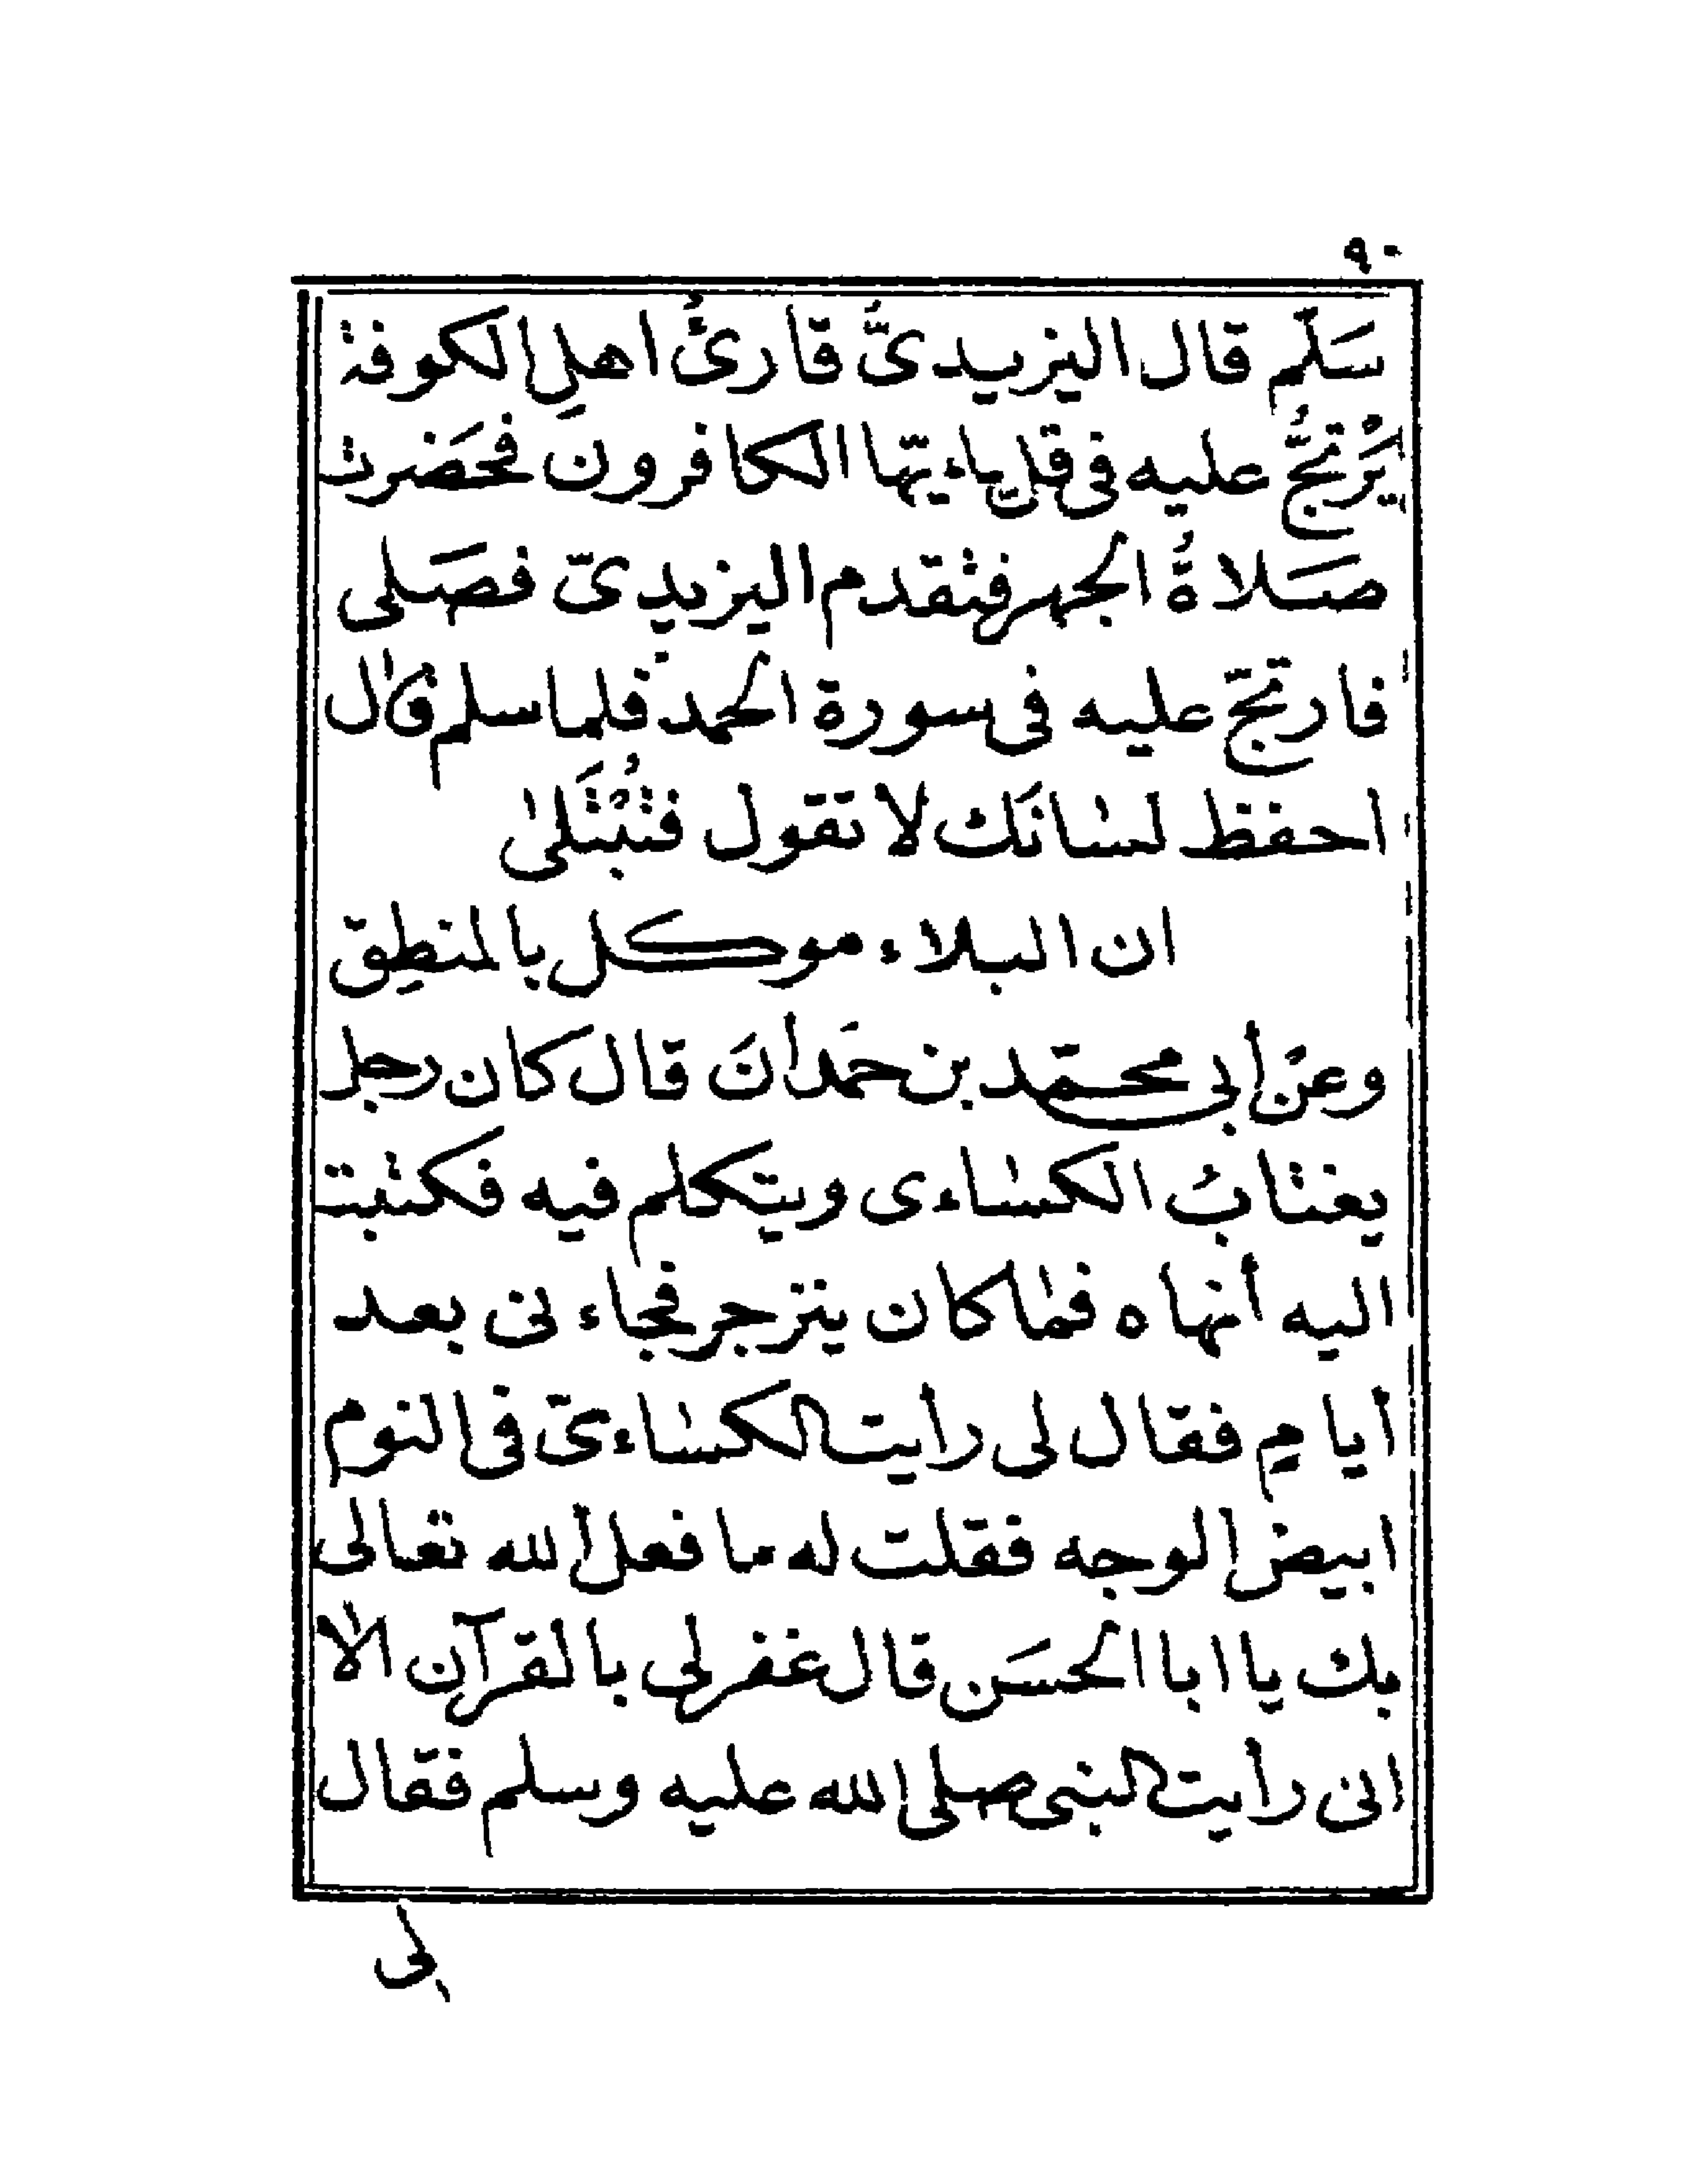 ٩٠
سَلّم قال اليزيدىَُّ قارئُ اهلِ الكوفة
يُرْتجُّ عليه فى قل ياءيّها الكافرون فحَضرت
صَلاةُ الجهر فتقدم اليزيدىّ فصَلى
فارتجّ عليه فى سورة الحمد فلما سلم قال
احفظ لسانَك لا تقول فتُبْتَلى
ان البلاء موكل بالمنطِق
وعن أبى محمّد بن حمَدانَ قال كان رجل
يغتابُ الكساءى ويتكلم فيه فكتبت
اليه أنهاه فما كان ينزجر فجاءنى بعد
أيامٍ فقال لى رأيت الكساءىّ فى النوم
ابيض الوجه فقلت له ما فعل الله تعالى
بك يا ابا الحسَن قال غفر لى بالقرآن الا
انى رأيت النبى صلى الله عليه وسلم فقال
لى